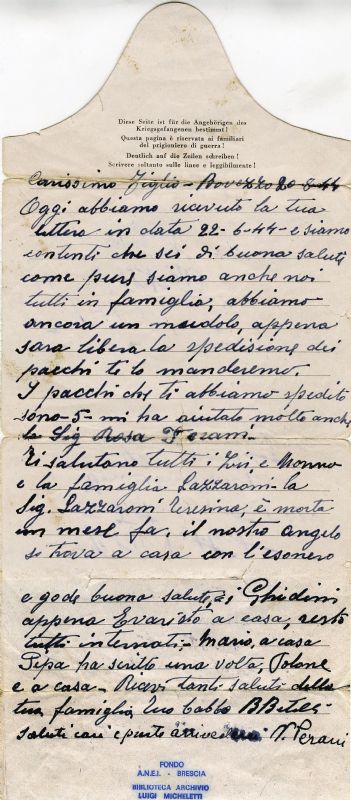 Diese Seite ist für die Angehörigen des
Kriegsgefangenen bestimmt!
Questa pagina è riservata ai familiari
del prigioniero di guerra!
Deutlich auf die Zeilen schreiben!
Scrivere soltanto sulle linee e leggibilmente!
Carissimo Figlio - Bovezzo 20-8-44
Oggi abbiamo ricevuto la tua
lettera in data 22-6-44 - e siamo
contenti che sei di buona salute
come pure siamo anche noi
tutti in famiglia, abbiamo
ancora un modolo, appena
sara libera la spedisione dei
pacchi te lo manderemo.
I pacchi che ti abbiamo spedito
sono - 5 - mi ha aiutato molto anche
la Sig Rosa
Ti salutano tutti i Zii, e Nonno
e la famiglia Lazzaroni - la
Sig. Lazzaroni Teresina, è morta
un mese fa. il nostro angelo
si trova a casa con l'esonero
e gode buona salute, Ghidini
appena Evaristo a casa, resto
tutti internati - Mario, a casa
Pepa ha scritto una volta,
e a casa - Ricevi tanti saluti della
tua famiglia, tuo babbo
saluti cari e
FONDO
A.N.E.I. - BRESCIA
BIBLIOTECA ARCHIVIO
LUIGI MICHELETTI